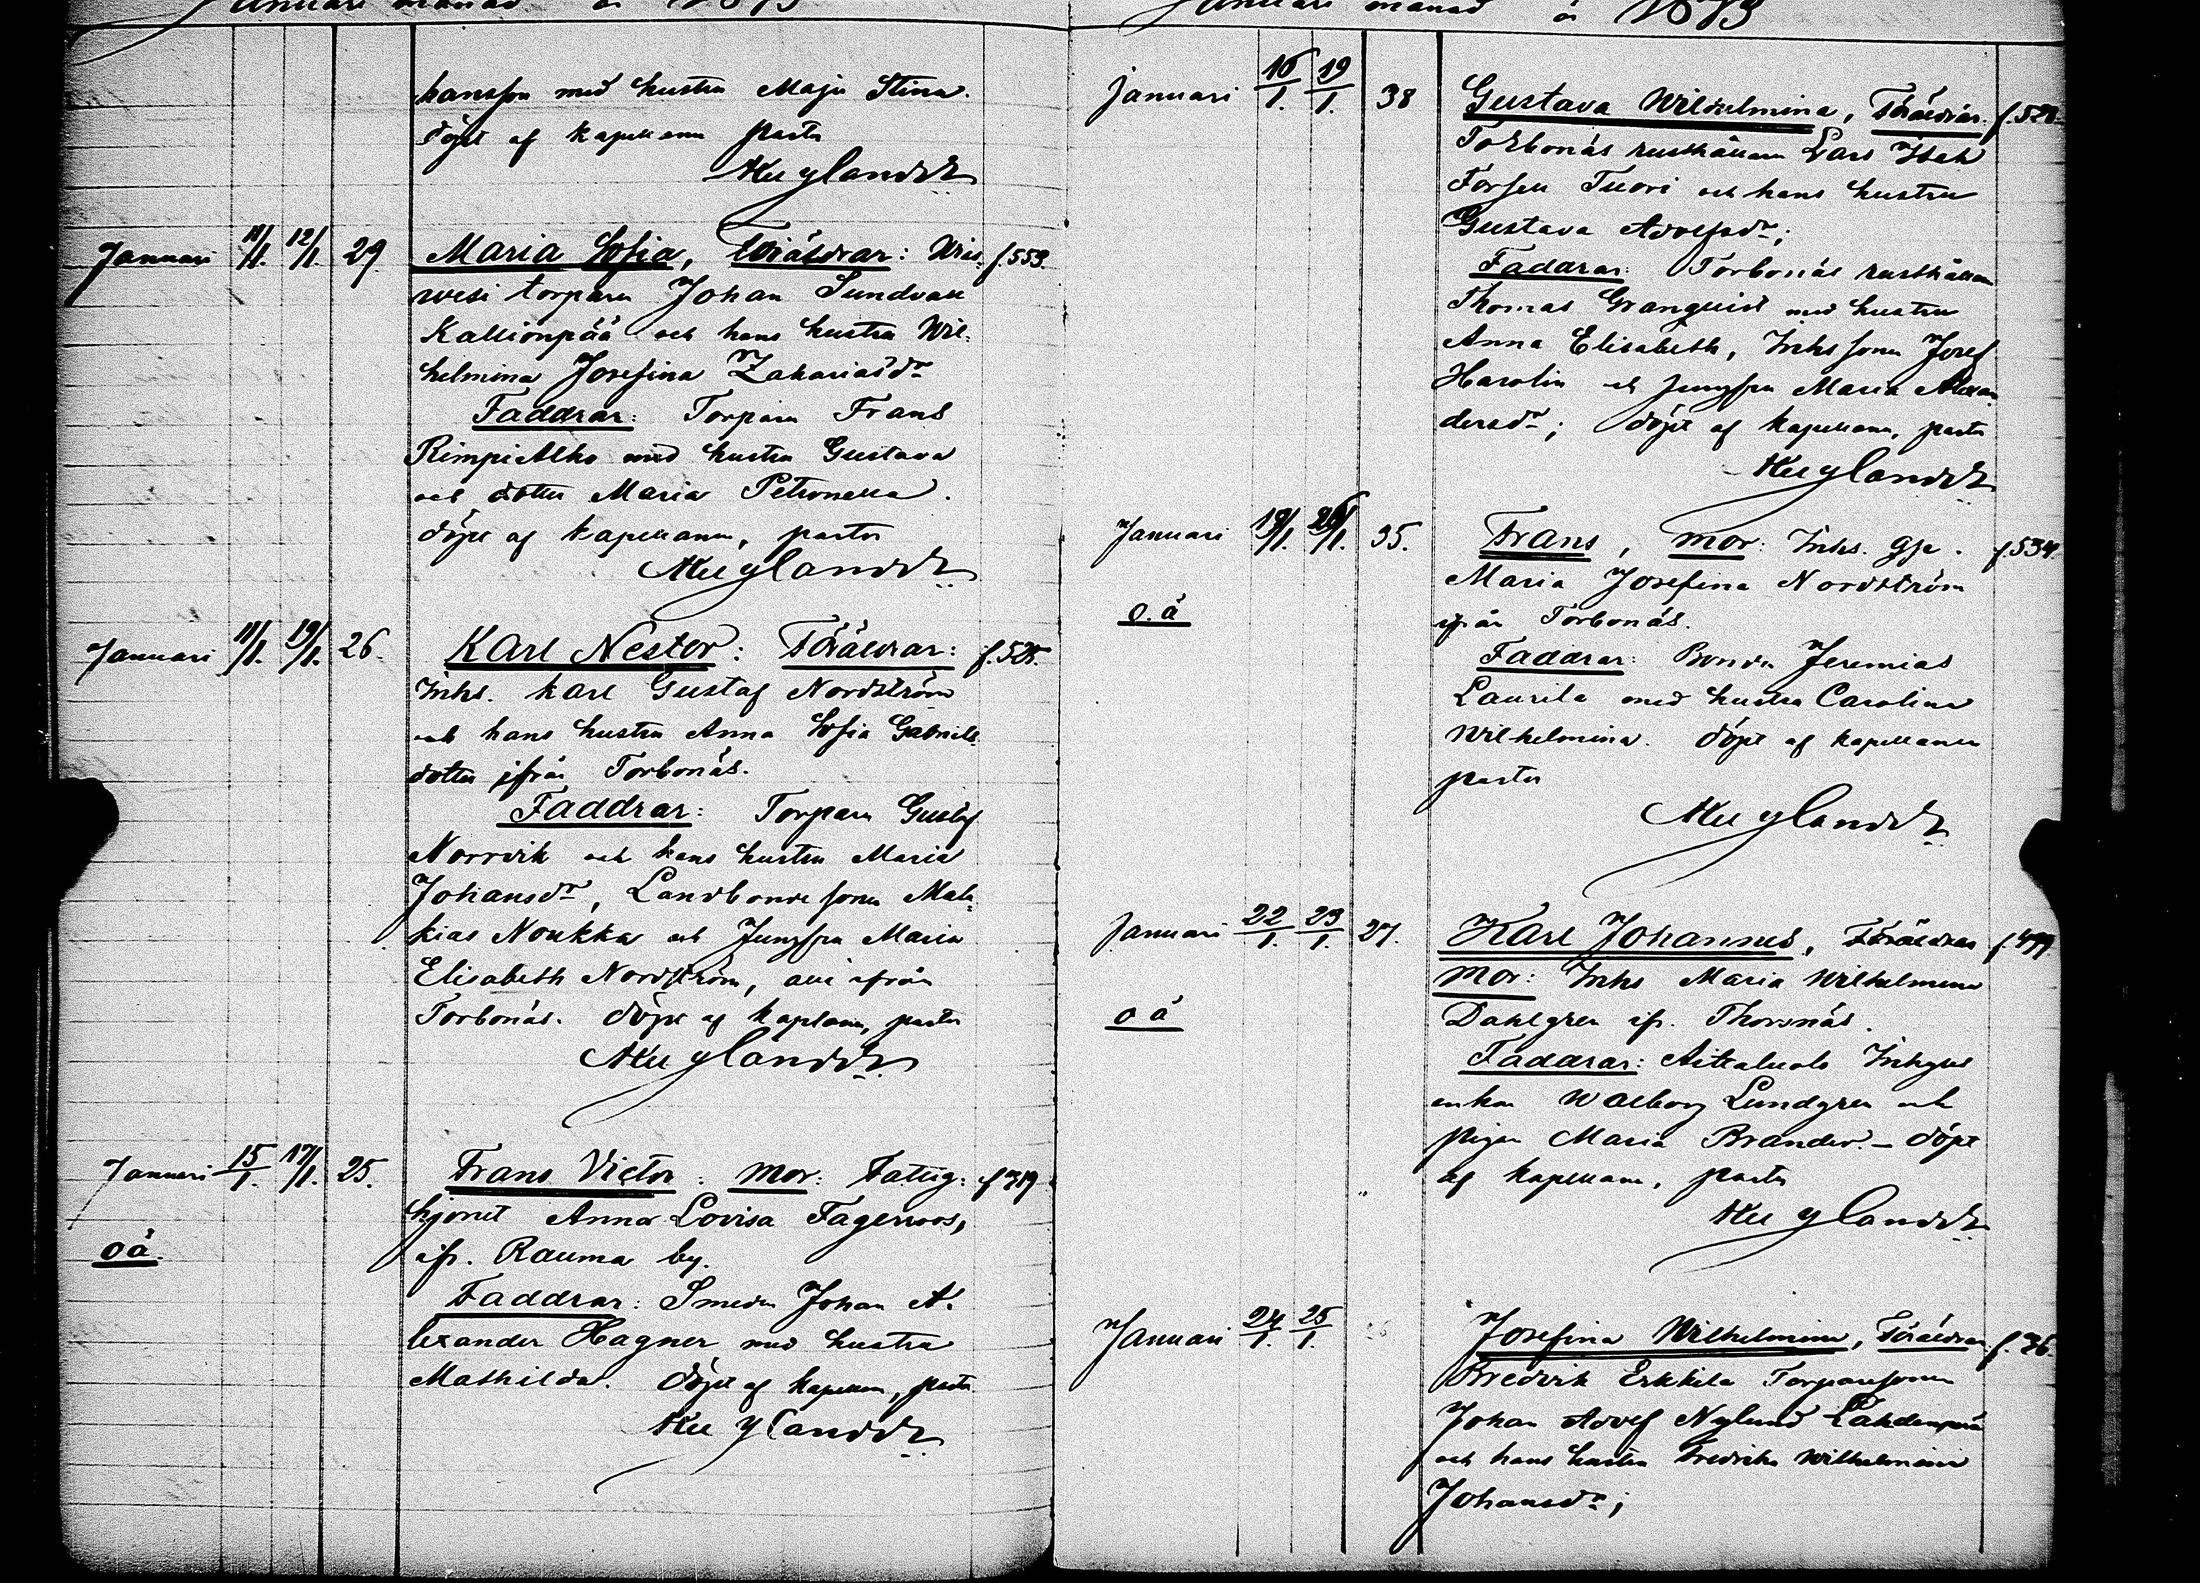 Januari månad år 1873
kansson med hustru Maja Stina.
döpt af kapellanen pastor
Januari 11/1. 12/1. 29 Maria Sofia, Föräldrar: f. 553.
wesi torparen Johan Sundvall
Kallionpää och hans hustru Wil-
helmina Josefina Zakariasdr
Faddrar: Torparen Frans
Rimpi Alho med hustru Gustava
och dotter Maria Petronella.
döpt af kapellanen, pastor
Januari 11/1. 19/1. 26. Karl Nestor: Föräldrar: f. 525.
Inhs. Karl Gustaf Nordström
och hans hustru Anna Sofia Gabriels
dotter ifrån Torbonäs.
Faddrar: Torparen Gustaf
Norrvik och hans hustru Maria
Johansdr, Landbonde sonen Mala-
kias Noukka och Jungfrun Maria
Elisabeth Nordström, alle ifrån
Torbonäs. döpt af kaplanen, pastor
Januari 15/1. 17/1. 25. Frans Victor: mor: Fattig- f 319
hjonet Anna Lovisa Fagerroos,
oä. ifr. Rauma by.
Faddrar: Smeden Johan A-
lexander Hagner med hustru
Mathilda. döpt af kapellanen, pastor
Januari månad år 1873
Januari 16/1. 19/1. 38 Gustava Wilhelmina, Föräldrar: f. 528.
Torbonäs rusthållaren Lars Isak
Forsell Tuori och hans hustru
Gustava Adolfsdr;
Faddrar: Torbonäs rusthållaren
Thomas Granquist med hustru
Anna Elisabeth, Inhs sonen Josef
Harolin och jungfrun Maria Alexan-
dersdr; döpt af kapellanen, pastor
Januari 19/1. 26/1. 35. Frans, mor: Inhs. gp. f. 534.
Maria Josefina Nordström
o.ä ifrån Torbonäs.
Faddrar: Bonden Jeremias
Laurila med hustru Carolina
Wilhelmina. döpt af kapellanen
pastor
Januari 22/1. 23/1. 27. Karl Johannes, Föräldrar f. 499.
mor: Inhs Maria Wilhelmina
oä Dahlgren ifr. Thorsnäs.
Faddrar: Aittaluoto Inhyses
enkan Walborg Lundgren och
pigan Maria Brander. – döpt
af kapellanen, pastor
Januari 24/1. 25/1. Josefina Wilhelmina, Föräldrar: f. 36.
Bredvik Erkkila Torparesonen
Johan Adolf Nylund Lahdenperä
och hans hustru Fredrika Wilhelmina
Johansdr;